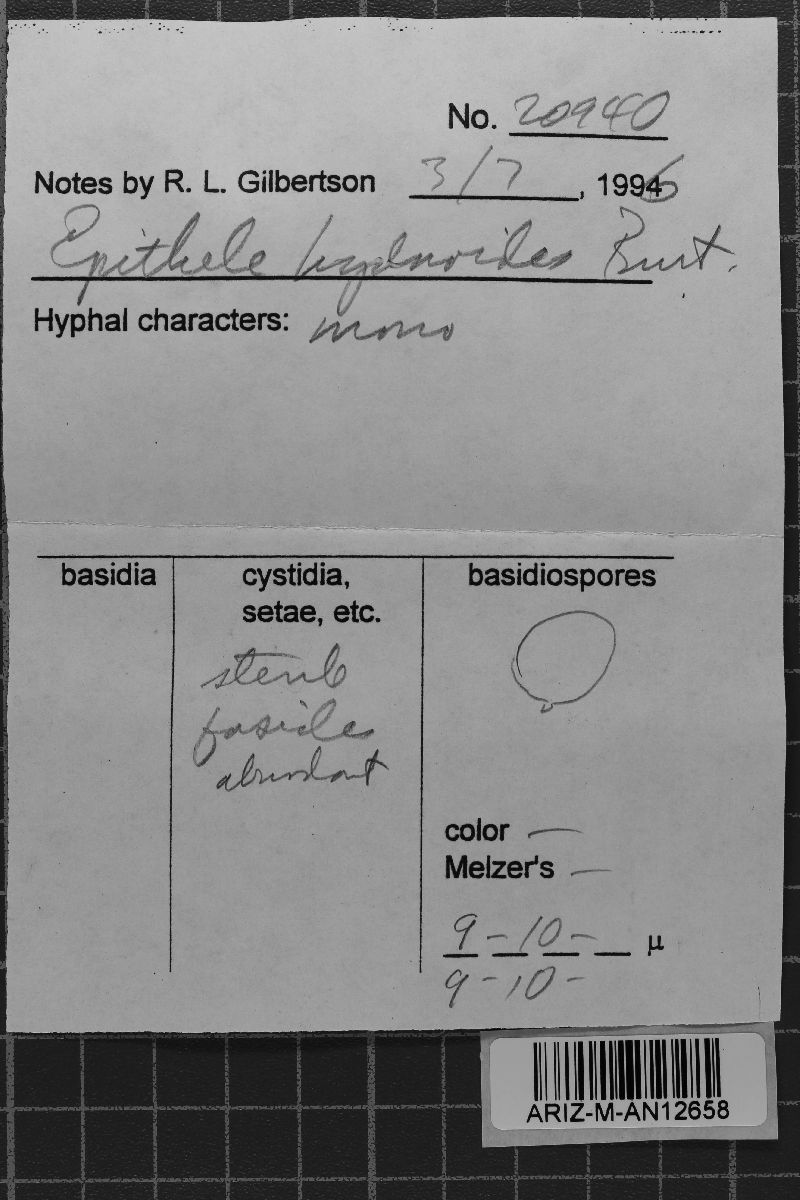 No. 20940
Notes by R. L. Gilbertson 3/7, 1996
Epithele hydnoides Burt.
Hyphal characters: mono
basidia
cystidia,
setae, etc.
sterile
fasicles
abundant
basidiospores
color –
Melzer's –
9 - 10 - µ
9 - 10 -
ARIZ-M-AN12658